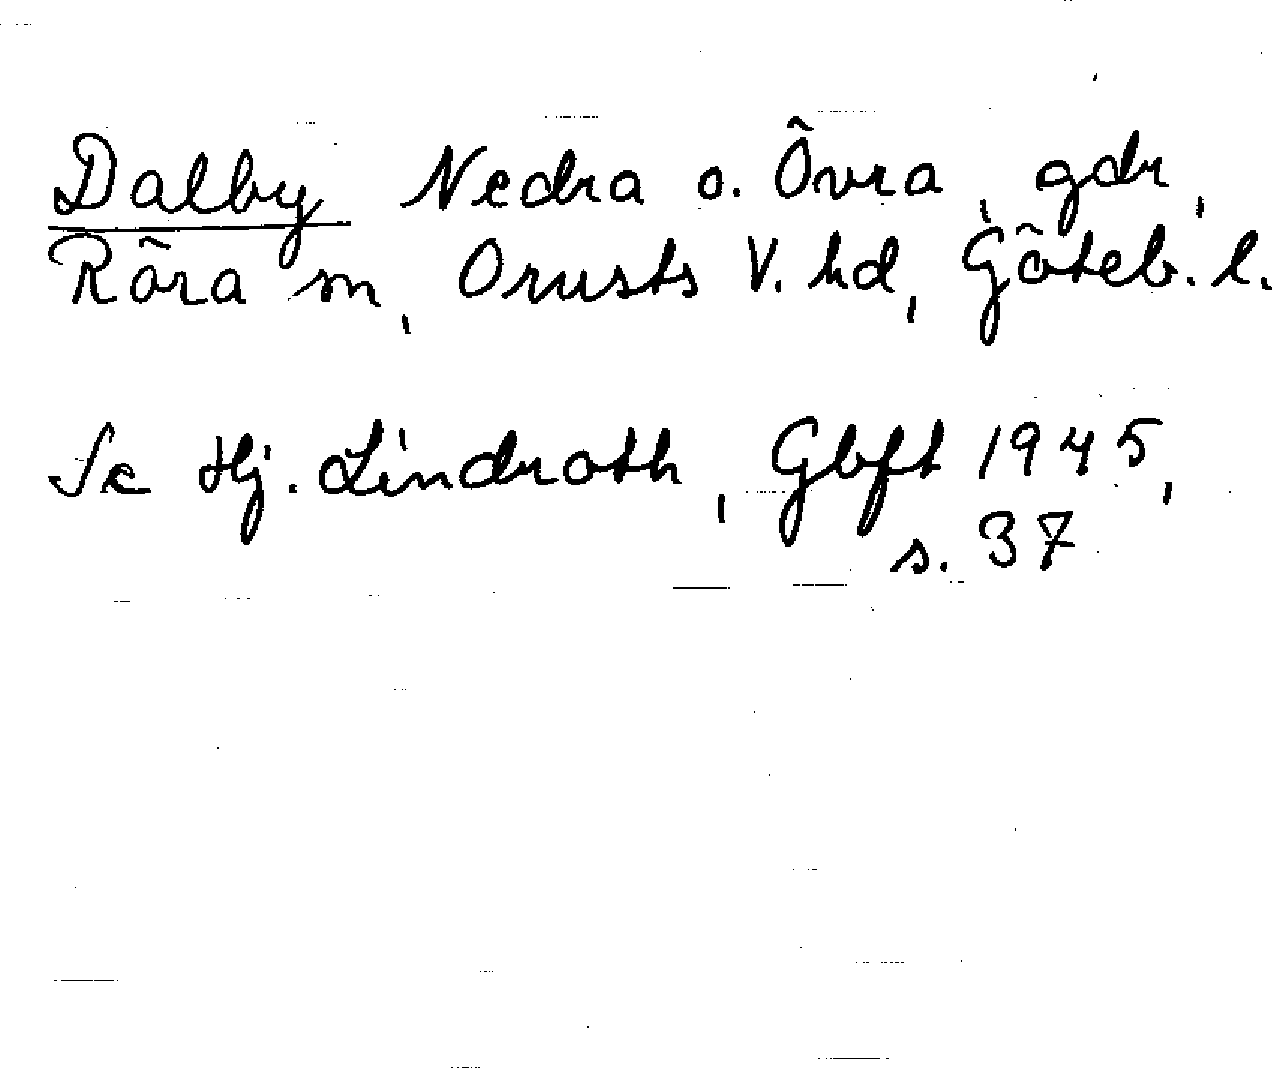 Dalby Nedra o. Övra, gdr,
Röra sn, Orusts V. hd, Göteb. l.
Se Hj. Lindroth, Gbft 1945,
s. 37